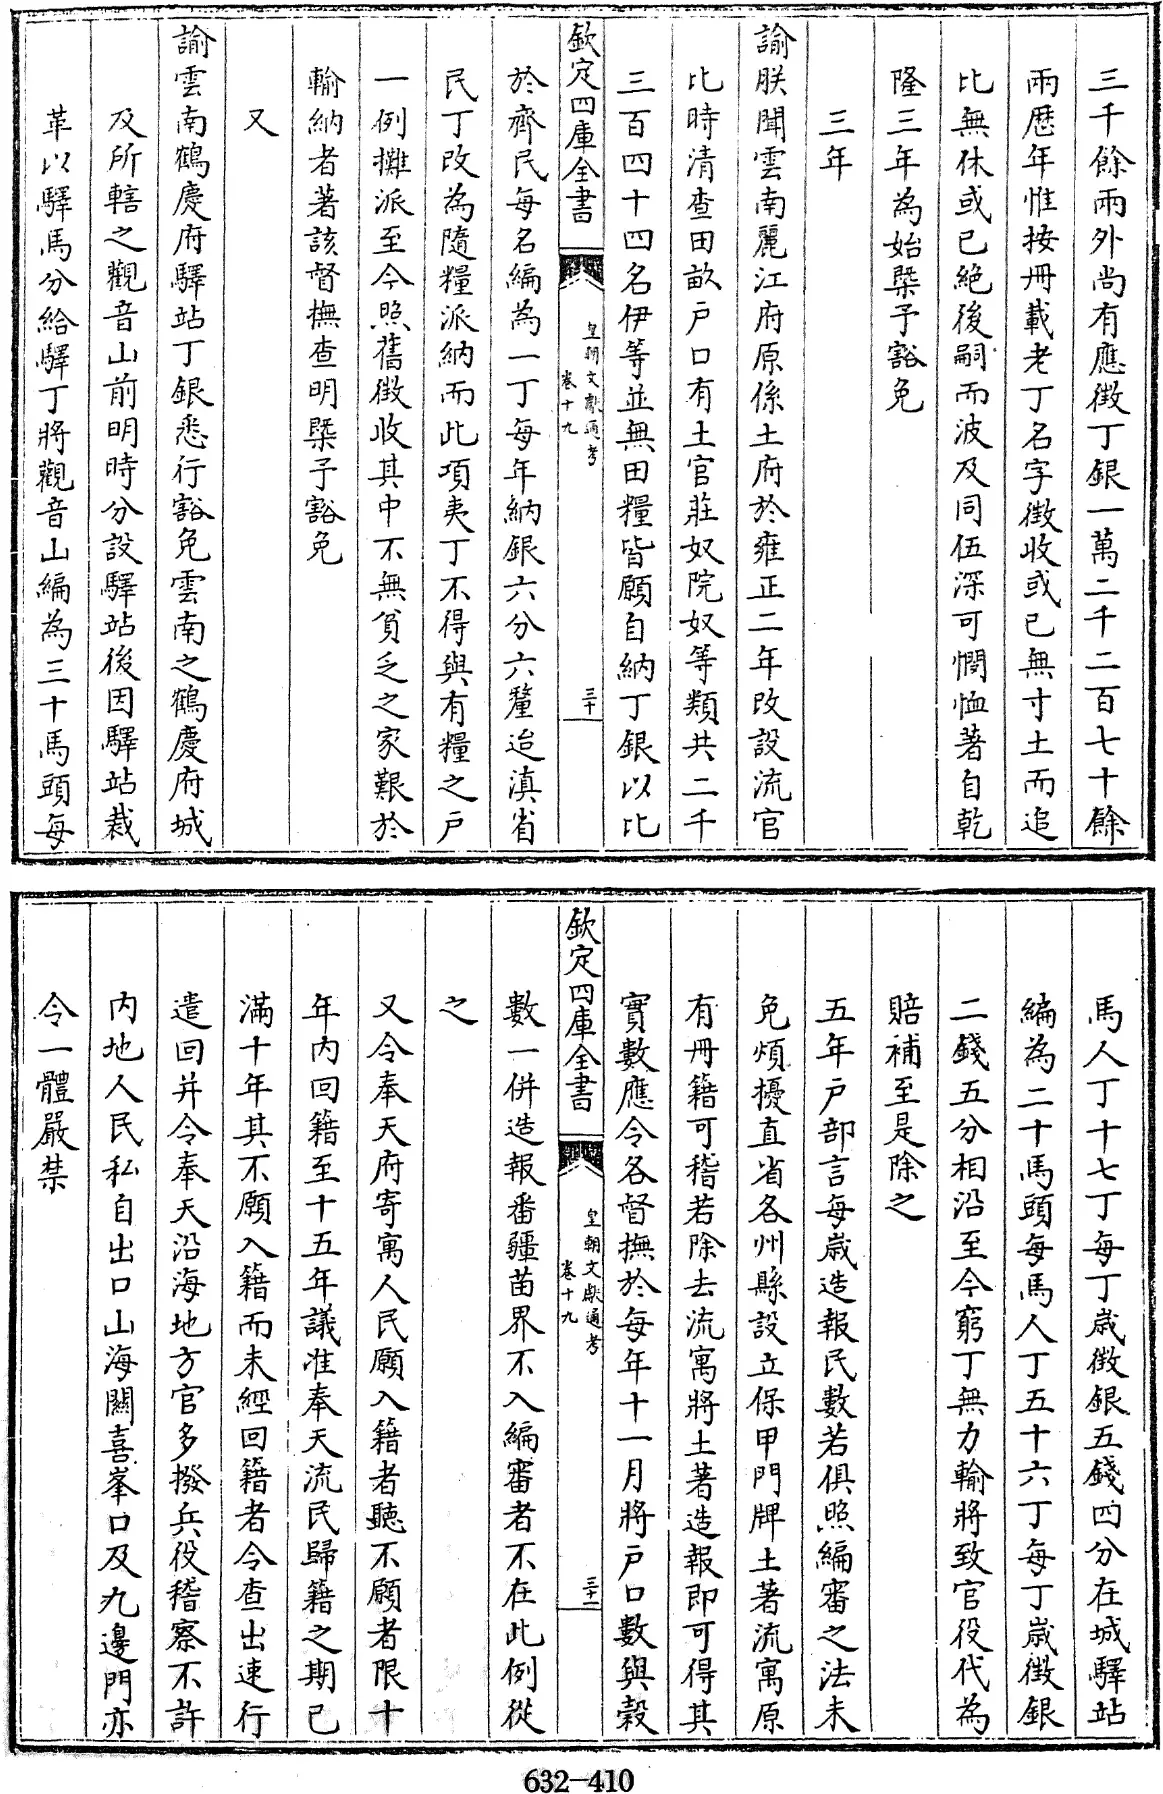 三千餘兩外尚有應徴丁銀一萬二千二百七十餘
兩歴年惟按冊載老丁名字徴收或已無寸土而追
比無休或已絶後嗣而波及同伍深可憫恤著自乾
隆三年為始槩予豁免
三年
諭朕聞雲南麗江府原係土府於雍正二年改設流官
比時清查田畝户口有土官莊奴院奴等類共二千
三百四十四名伊等並無田糧皆願自納丁銀以比
欽定四庫全書
皇朝文獻通考
卷十九
三十
於齊民每名編為一丁每年納銀六分六釐迨滇省
民丁改為隨糧派納而此項夷丁不得與有糧之户
一例攤派至今照舊徴收其中不無貧乏之家艱於
輸納者著該督撫查明槩予豁免
又
諭雲南鶴慶府驛站丁銀悉行豁免雲南之鶴慶府城
及所轄之觀音山前明時分設驛站後因驛站裁
革以驛馬分給驛丁將觀音山編為三十馬頭每
馬人丁十七丁每丁歲徴銀五錢四分在城驛站
編為二十馬頭每馬人丁五十六丁每丁歲徴銀
二錢五分相沿至今窮丁無力輸將致官役代為
賠補至是除之
五年户部言每歲造報民數若俱照編審之法未
免煩擾直省各州縣設立保甲門牌土著流寓原
有冊籍可稽若除去流寓將土著造報即可得其
實數應令各督撫於每年十一月將户口數與穀
欽定四庫全書
皇朝文獻通考
卷十九
三十一
數一併造報番疆苗界不入編審者不在此例從
之
又令奉天府寄寓人民願入籍者聽不願者限十
年内回籍至十五年議准奉天流民歸籍之期已
滿十年其不願入籍而未經回籍者令查出速行
遣回并令奉天沿海地方官多撥兵役稽察不許
内地人民私自出口山海關喜峯口及九邊門亦
令一體嚴禁
632-410